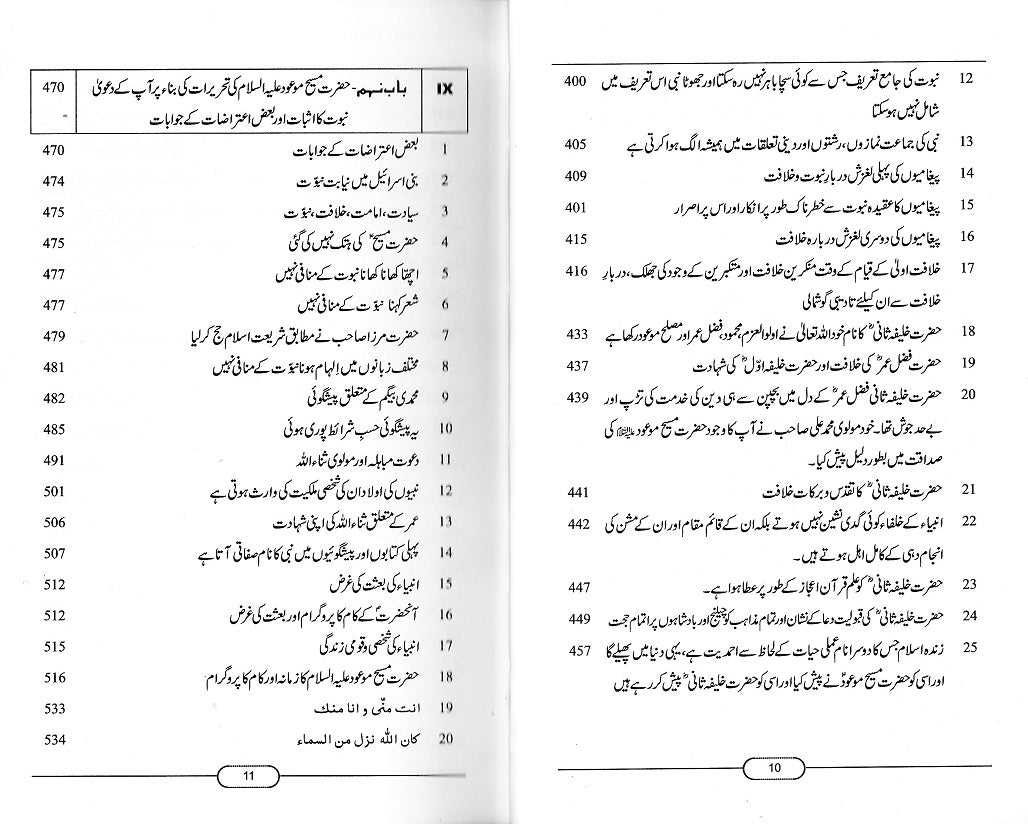 12 نبوت کی جامع تعریف جس سے کوئی سچا باہر نہیں رہ سکتا اور جھوٹا نبی اس تعریف میں 400
شامل نہیں ہو سکتا
13 نبی کی جماعت نمازوں، رشتوں اور دینی تعلقات میں ہمیشہ الگ ہوا کرتی ہے 405
14 پیغامیوں کی پہلی لغزش دربارِ نبوت و خلافت 409
15 پیغامیوں کا عقیدہ نبوت سے خطرناک طور پر انکار اور اس پر اصرار 401
16 پیغامیوں کی دوسری لغزش دربارہ خلافت 415
17 خلافت اولیٰ کے قیام کے وقت منکرین خلافت اور متکبرین کے وجود کی جھلک، دربارِ 416
خلافت سے ان کیلئے تادیبی گوشمالی
18 حضرت خلیفہ ثانیؓ کا نام خود اللہ تعالیٰ نے اولوالعزم، محمود، فضل عمر اور مصلح موعود رکھا ہے 433
19 حضرت فضل عمرؓ کی خلافت اور حضرت خلیفہ اوّلؓ کی شہادت 437
20 حضرت خلیفہ ثانی فضل عمرؓ کے دل میں بچپن سے ہی دین کی خدمت کی تڑپ اور 439
بے حد جوش تھا۔ خود مولوی محمد علی صاحب نے آپ کا وجود حضرت مسیح موعود علیہ السلام کی
صداقت میں بطور دلیل پیش کیا۔
21 حضرت خلیفہ ثانیؓ کا تقدّس و برکات خلافت 441
22 انبیاء کے خلفاء کوئی گدی نشین نہیں ہوتے بلکہ ان کے قائم مقام اور ان کے مشن کی 442
انجام دہی کے کامل اہل ہوتے ہیں۔
23 حضرت خلیفہ ثانیؓ کو علم قرآن اعجاز کے طور پر عطا ہوا ہے۔ 447
24 حضرت خلیفہ ثانیؓ کی قبولیت دعا کے نشان اور تمام مذاہب کو چیلنج اور بادشاہوں پر اتمام حجت 449
25 زندہ اسلام جس کا دوسرا نام عملی حیات کے لحاظ سے احمدیت ہے، یہی دنیا میں پھیلے گا 457
اور اسی کو حضرت مسیح موعودؑ نے پیش کیا اور اسی کو حضرت خلیفہ ثانیؓ پیش کر رہے ہیں
10
IX باب نہم - حضرت مسیح موعود علیہ السلام کی تحریرات کی بناء پر آپ کے دعویٰ 470
نبوت کا اثبات اور بعض اعتراضات کے جوابات
1 بعض اعتراضات کے جوابات 470
2 بنی اسرائیل میں نیابت نبوّت 474
3 سیادت، امامت، خلافت، نبوّت 475
4 حضرت مسیحؑ کی ہتک نہیں کی گئی 475
5 اچھا کھانا کھانا نبوت کے منافی نہیں 477
6 شعر کہنا نبوّت کے منافی نہیں 477
7 حضرت مرزا صاحب نے مطابق شریعت اسلام حج کر لیا 479
8 مختلف زبانوں میں اِلہام ہونا نبوّت کے منافی نہیں 481
9 محمدی بیگم کے متعلق پیشگوئی 482
10 یہ پیشگوئی حسبِ شرائط پوری ہوئی 485
11 دعوت مباہلہ اور مولوی ثناء اللہ 491
12 نبیوں کی اولاد ان کی شخصی ملکیت کی وارث ہوتی ہے 501
13 عمر کے متعلق ثناء اللہ کی اپنی شہادت 506
14 پہلی کتابوں اور پیشگوئیوں میں نبی کا نام صفاتی آتا ہے 507
15 انبیاء کی بعثت کی غرض 512
16 آنحضرتؐ کے کام کا پروگرام اور بعثت کی غرض 512
17 انبیاء کی شخصی و قومی زندگی 515
18 حضرت مسیح موعود علیہ السلام کا زمانہ اور کام کا پروگرام 516
19 انت منّی و انا منك 533
20 كان الله نزل من السماء 534
11